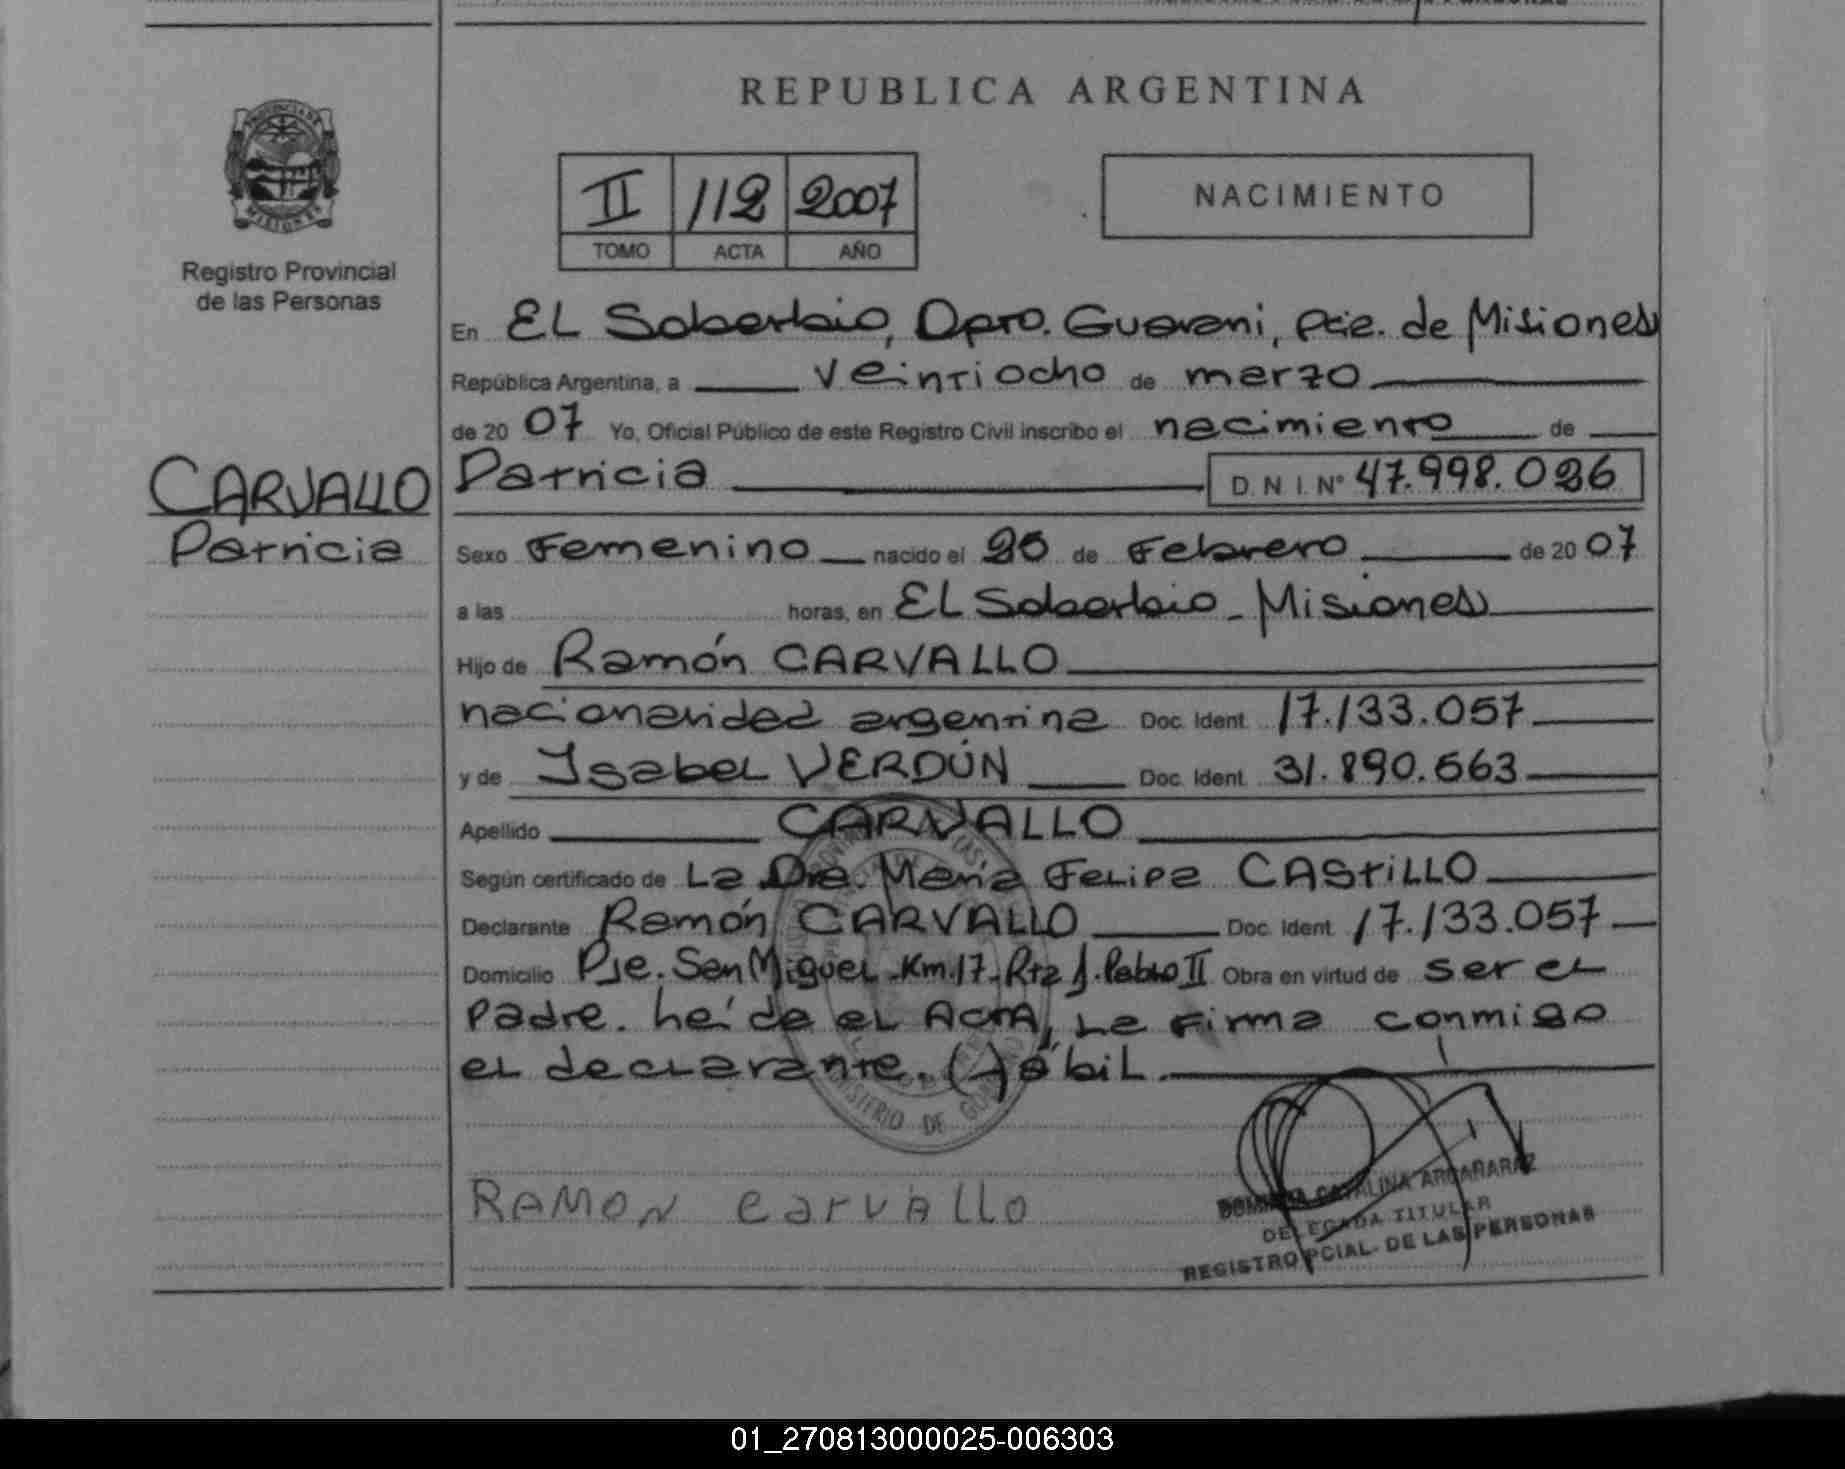 REPUBLICA ARGENTINA
II 112 2007
TOMO ACTA AÑO
NACIMIENTO
PROVINCIA DE MISIONES
Registro Provincial
de las Personas
En EL Soberbio, Dpto. Guarani, Pcia. de Misiones
República Argentina, a veintiocho de marzo
de 20 07 Yo, Oficial Público de este Registro Civil inscribo el nacimiento de
CARVALLO
Patricia
Patricia D.N.I.Nº 47.998.026
Sexo Femenino nacido el de Febrero de 20 07
a las horas, en EL Soberbio - Misiones
Hijo de Ramón CARVALLO
nacionalidad argentina Doc. Ident. 17.133.057
y de Isabel VERDÚN Doc. Ident. 31.890.663
Apellido CARVALLO
Según certificado de La Dra. Maria Felipa CASTILLO
Declarante Ramón CARVALLO Doc. Ident. 17.133.057
Domicilio Pje. San Miguel - Km.17 - Rta J. Pablo II Obra en virtud de ser el
padre. leída el ACTA, la firma conmigo
el declarante. bil.
RAMON carvallo
CATALINA ARGAÑARAZ
DELEGADA TITULAR
REGISTRO PCIAL. DE LAS PERSONAS
01_270813000025-006303